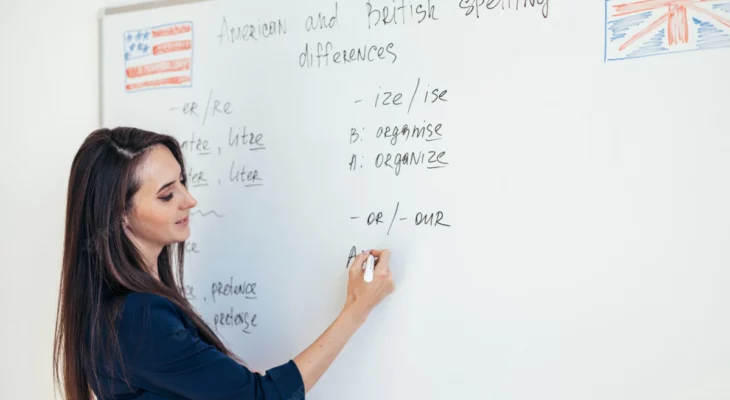 American and British spelling
differences
-er/re
litre
liter
pretence
pretense
- ize/ise
B: organise
A: organize
- or/- our
A